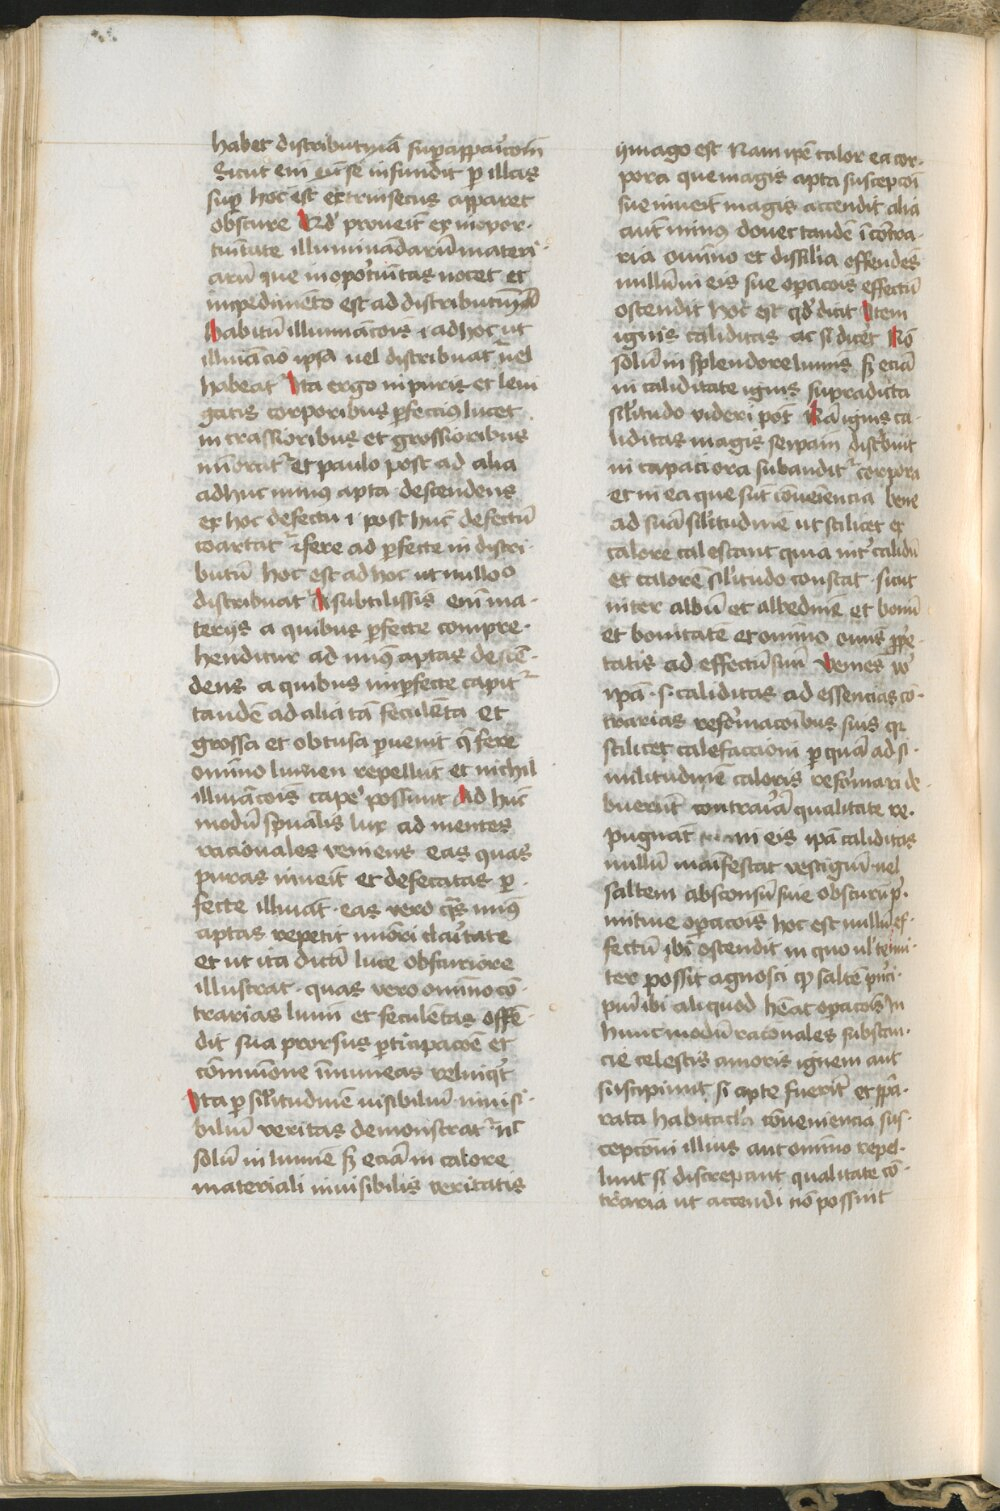 habet distributiuā sup apparicōm
Sicut eni cū se infundit p illas
sup hoc est extrinsecus apparet
obscure Qd' proueit ex inopor-
tuītate illuminādarū materi-
arū que inoportuītas nocet et
impedimēto est ad distributiuā
habitū illumiācois i ad hoc ut
illuiācio ipsa uel distribuat' uel
habeat' Ita ergo in puris et leui
gatis corporibus pfecciꝯ lucet
in crassioribus et grossioribus
minorat' et paulo post ad alia
adhuc minꝯ apta descendens
ex hoc defectu i post huc defectū
coartat' i fere ad pfecte in distri-
butū hoc est ad hoc ut nullo°
distribuat' A subtilissīs enī ma-
terijs a quibus pfecte compre-
henditur ad minꝯ aptas descē-
dens a quibus impfecte capit'
tandē ad alia tā feculēta et
grossa et obtusa puenit q fere
omīno lumen repellūt et nichil
illuiācois cape' possunt Ad hūc
modū spūalis lux ad mentes
racionales veniens eas quas
puras inueīt et defecatas p-
fecte illuīat eas vero q̄s minꝯ
aptas repetit minori claritate
et ut ita dicā luce obscuriore
illustrat quas vero omīno cō-
trarias lumī et feculētas offē-
dit sua prorsus pticipacoē et
cōmuīone īmuneas relinqt'
Ita p silitudinē uisibiliū inuisi-
biliū veritas demonstrat' nc̄
solū in lumīe sz eciā in calore
materiali inuisibilis veritatis
ymago est Nam ipē calor ea cor-
pora que magis apta suscepcōī
sue inueīt magis accendit alia
aut minꝯ donec tandē ī cōtra-
ria omīno et dissīlia offendēs
nullū in eis sue opacois effectū
ostendit hoc est qd' dicit Item
ignis caliditas ac si dicet Nō
solū in splendore lumīs sz eciā
in caliditate ignis supradicta
silitudo videri pōt Nā ignis ca-
liditas magis seipam distbuit
in capaciora subaudit' corpora
et in ea que sūt cōueīencia bene
ad suā silitudinē ut scilicet ex
calore calescant quia int' calidū
et calorē silitudo constat sicut
inter albū et albedinē et bonū
et bonitatē et omīno omīs ppe-
tatis ad effectū suū Uemēs v°
ipā s caliditas ad essencias cō-
trarias reformacoībus suis qr
scilicet calefaccioni p quā ad si-
militudinē caloris reformari de-
buerūt contrariā qualitate re-
pugnāt in eis ipā caliditas
nullū maīfestat vestigiū uel
saltem absconsū siue obscurū p-
mitiue opacois hoc est nullū ef-
fectū ibi ostendit in quo ul' teīui-
ter possit agnosci q saltē pnci-
piū ibi aliquod hēat opacois In
hunc modū racionales substan-
cie celestis amoris ignem aut
suscipiunt si apte fuerīt et ppa-
rata habitacla cōueniencia sus-
cepcōni illius aut omīno repel-
lunt si discrepant qualitate cō-
traria ut accendi nō possint